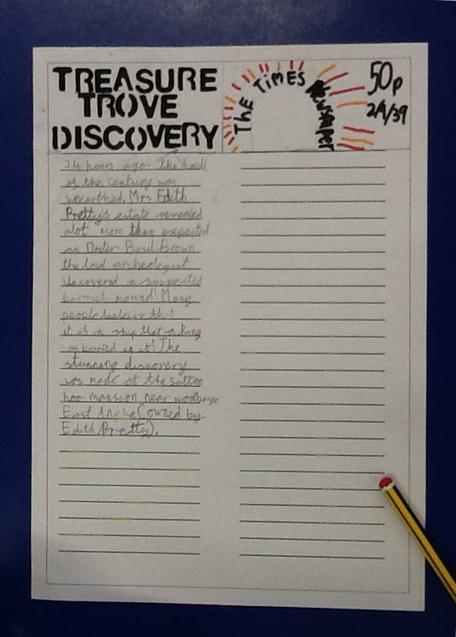 TREASURE
TROVE
DISCOVERY
THE TIMES Newspaper
50p
2/9/39
24 hours ago the haul
of the century was
unearthed, Mrs Edith
Pretty's estate revealed
alot more than expected
as Doctor Basil Brown
the lead archeologist
Uncovered a suspected
barrial mound! Many
people beleeve tht
it is a ship that a King
was buried in it! The
stunning discovery
was made at the sutton
hoo mansion near
East (owned by
Edith Pretty).